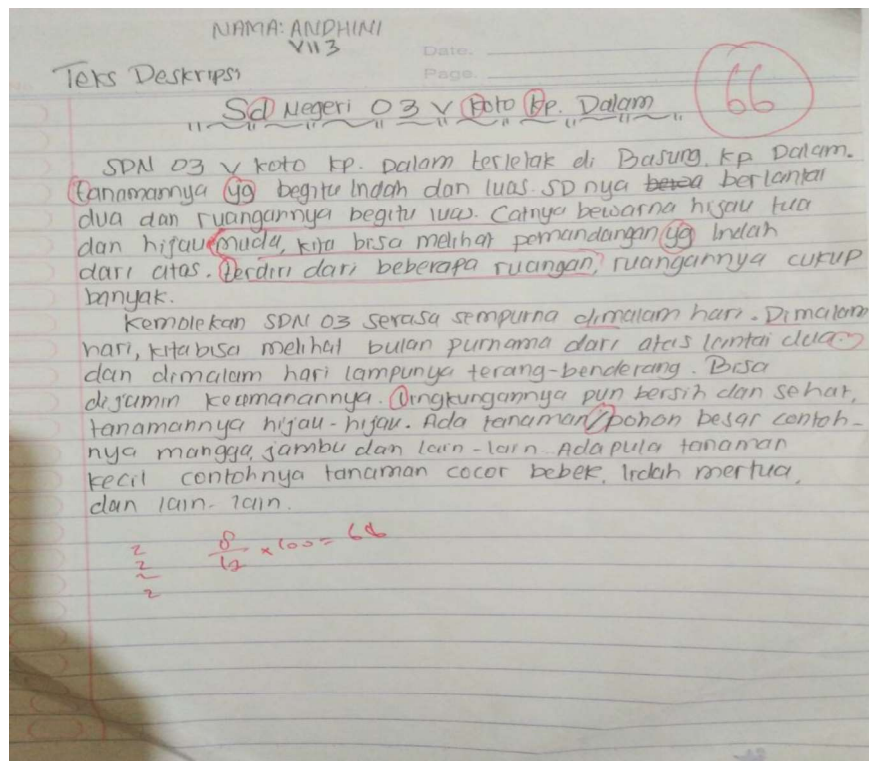 NAMA: ANDHINI
VII 3
Date.
Page.
Teks Deskripsi
66
Sd Negeri 03 V Koto Kp. Dalam
SDN 03 V Koto Kp. Dalam terletak di Basung, Kp Dalam.
tanamannya yg begitu Indah dan luas. SD nya berlantai
dua dan ruangannya begitu luas. Catnya bewarna hijau tua
dan hijau muda, kita bisa melihat pemandangan yg Indah
dari atas. terdiri dari beberapa ruangan, ruangannya cukup
banyak.
Kemolekan SDN 03 serasa sempurna dimalam hari. Dimalam
hari, kita bisa melihat bulan purnama dari atas lantai dua
dan dimalam hari lampunya terang-benderang. Bisa
dijamin keamanannya. lingkungannya pun bersih dan sehat,
tanamannya hijau-hijau. Ada tanaman/pohon besar contoh-
nya mangga, jambu dan lain-lain. Ada pula tanaman
kecil contohnya tanaman cocor bebek, lidah mertua,
dan lain-lain.
2
2
2
2
8/12 x 100 = 66